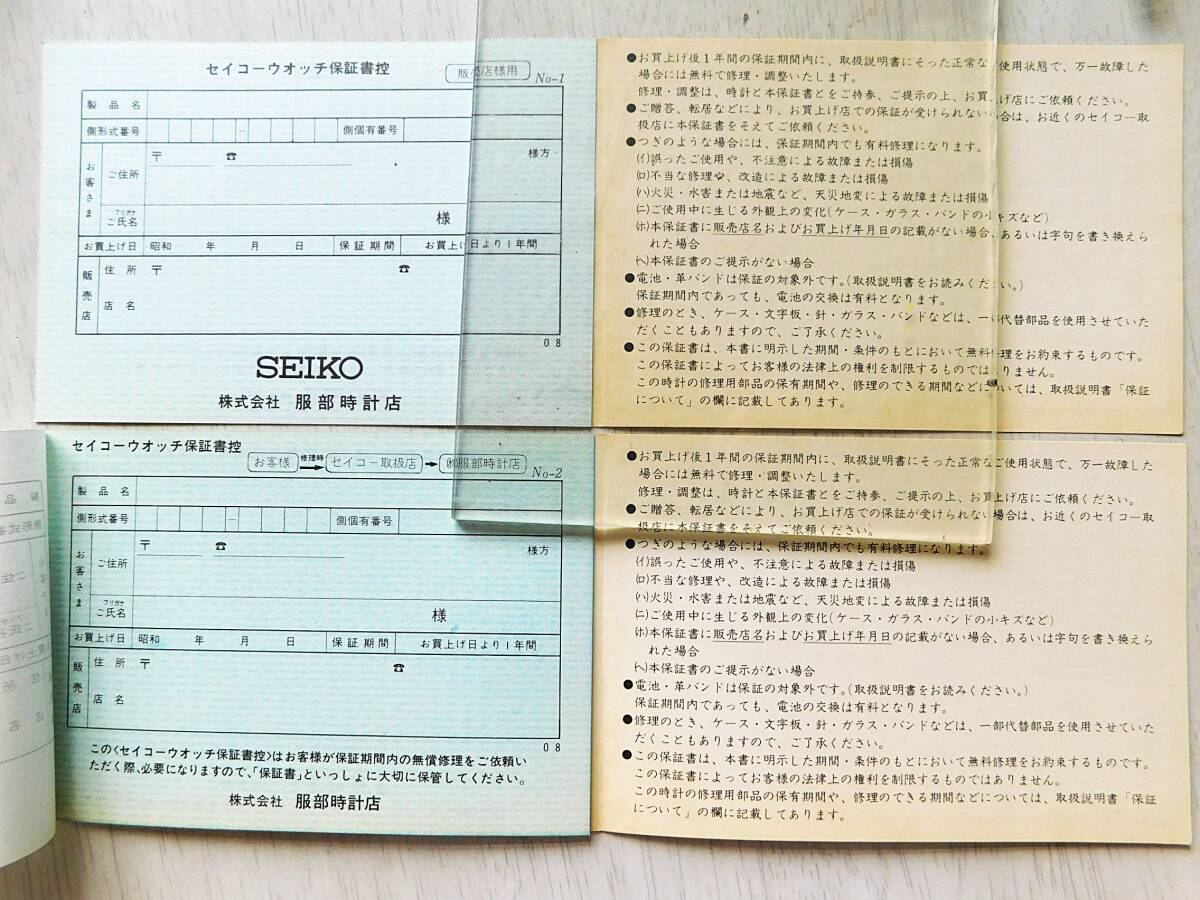 セイコーウオッチ保証書控
販売店様用
No-1
製品名
側形式番号
側個有番号
お客さま
ご住所
〒 ☎
様方
フリガナ
ご氏名
様
お買上げ日 昭和 年 月 日 保証期間 お買上げ日より1年間
販売店
住所 〒 ☎
店名
08
SEIKO
株式会社 服部時計店
●お買上げ後1年間の保証期間内に、取扱説明書にそった正常なご使用状態で、万一故障した
場合には無料で修理・調整いたします。
修理・調整は、時計と本保証書とをご持参、ご提示の上、お買上げ店にご依頼ください。
●ご贈答、転居などにより、お買上げ店での保証が受けられない場合は、お近くのセイコー取
扱店に本保証書をそえてご依頼ください。
●つぎのような場合には、保証期間内でも有料修理になります。
(イ)誤ったご使用や、不注意による故障または損傷
(ロ)不当な修理や、改造による故障または損傷
(ハ)火災・水害または地震など、天災地変による故障または損傷
(ニ)ご使用中に生じる外観上の変化(ケース・ガラス・バンドの小キズなど)
(ホ)本保証書に販売店名およびお買上げ年月日の記載がない場合、あるいは字句を書き換えら
れた場合
(ヘ)本保証書のご提示がない場合
●電池・革バンドは保証の対象外です。(取扱説明書をお読みください。)
保証期間内であっても、電池の交換は有料となります。
●修理のとき、ケース・文字板・針・ガラス・バンドなどは、一部代替部品を使用させていた
だくこともありますので、ご了承ください。
●この保証書は、本書に明示した期間・条件のもとにおいて無料修理をお約束するものです。
この保証書によってお客様の法律上の権利を制限するものではありません。
この時計の修理用部品の保有期間や、修理のできる期間などについては、取扱説明書「保証
について」の欄に記載してあります。
セイコーウオッチ保証書控
お客様 修理時→ セイコー取扱店 → ㈱服部時計店
No-2
製品名
側形式番号
側個有番号
お客さま
ご住所
〒 ☎
様方
フリガナ
ご氏名
様
お買上げ日 昭和 年 月 日 保証期間 お買上げ日より1年間
販売店
住所 〒 ☎
店名
08
この〈セイコーウオッチ保証書控〉はお客様が保証期間内の無償修理をご依頼い
ただく際、必要になりますので、「保証書」といっしょに大切に保管してください。
株式会社 服部時計店
●お買上げ後1年間の保証期間内に、取扱説明書にそった正常なご使用状態で、万一故障した
場合には無料で修理・調整いたします。
修理・調整は、時計と本保証書とをご持参、ご提示の上、お買上げ店にご依頼ください。
●ご贈答、転居などにより、お買上げ店での保証が受けられない場合は、お近くのセイコー取
扱店に本保証書をそえてご依頼ください。
●つぎのような場合には、保証期間内でも有料修理になります。
(イ)誤ったご使用や、不注意による故障または損傷
(ロ)不当な修理や、改造による故障または損傷
(ハ)火災・水害または地震など、天災地変による故障または損傷
(ニ)ご使用中に生じる外観上の変化(ケース・ガラス・バンドの小キズなど)
(ホ)本保証書に販売店名およびお買上げ年月日の記載がない場合、あるいは字句を書き換えら
れた場合
(ヘ)本保証書のご提示がない場合
●電池・革バンドは保証の対象外です。(取扱説明書をお読みください。)
保証期間内であっても、電池の交換は有料となります。
●修理のとき、ケース・文字板・針・ガラス・バンドなどは、一部代替部品を使用させていた
だくこともありますので、ご了承ください。
●この保証書は、本書に明示した期間・条件のもとにおいて無料修理をお約束するものです。
この保証書によってお客様の法律上の権利を制限するものではありません。
この時計の修理用部品の保有期間や、修理のできる期間などについては、取扱説明書「保証
について」の欄に記載してあります。